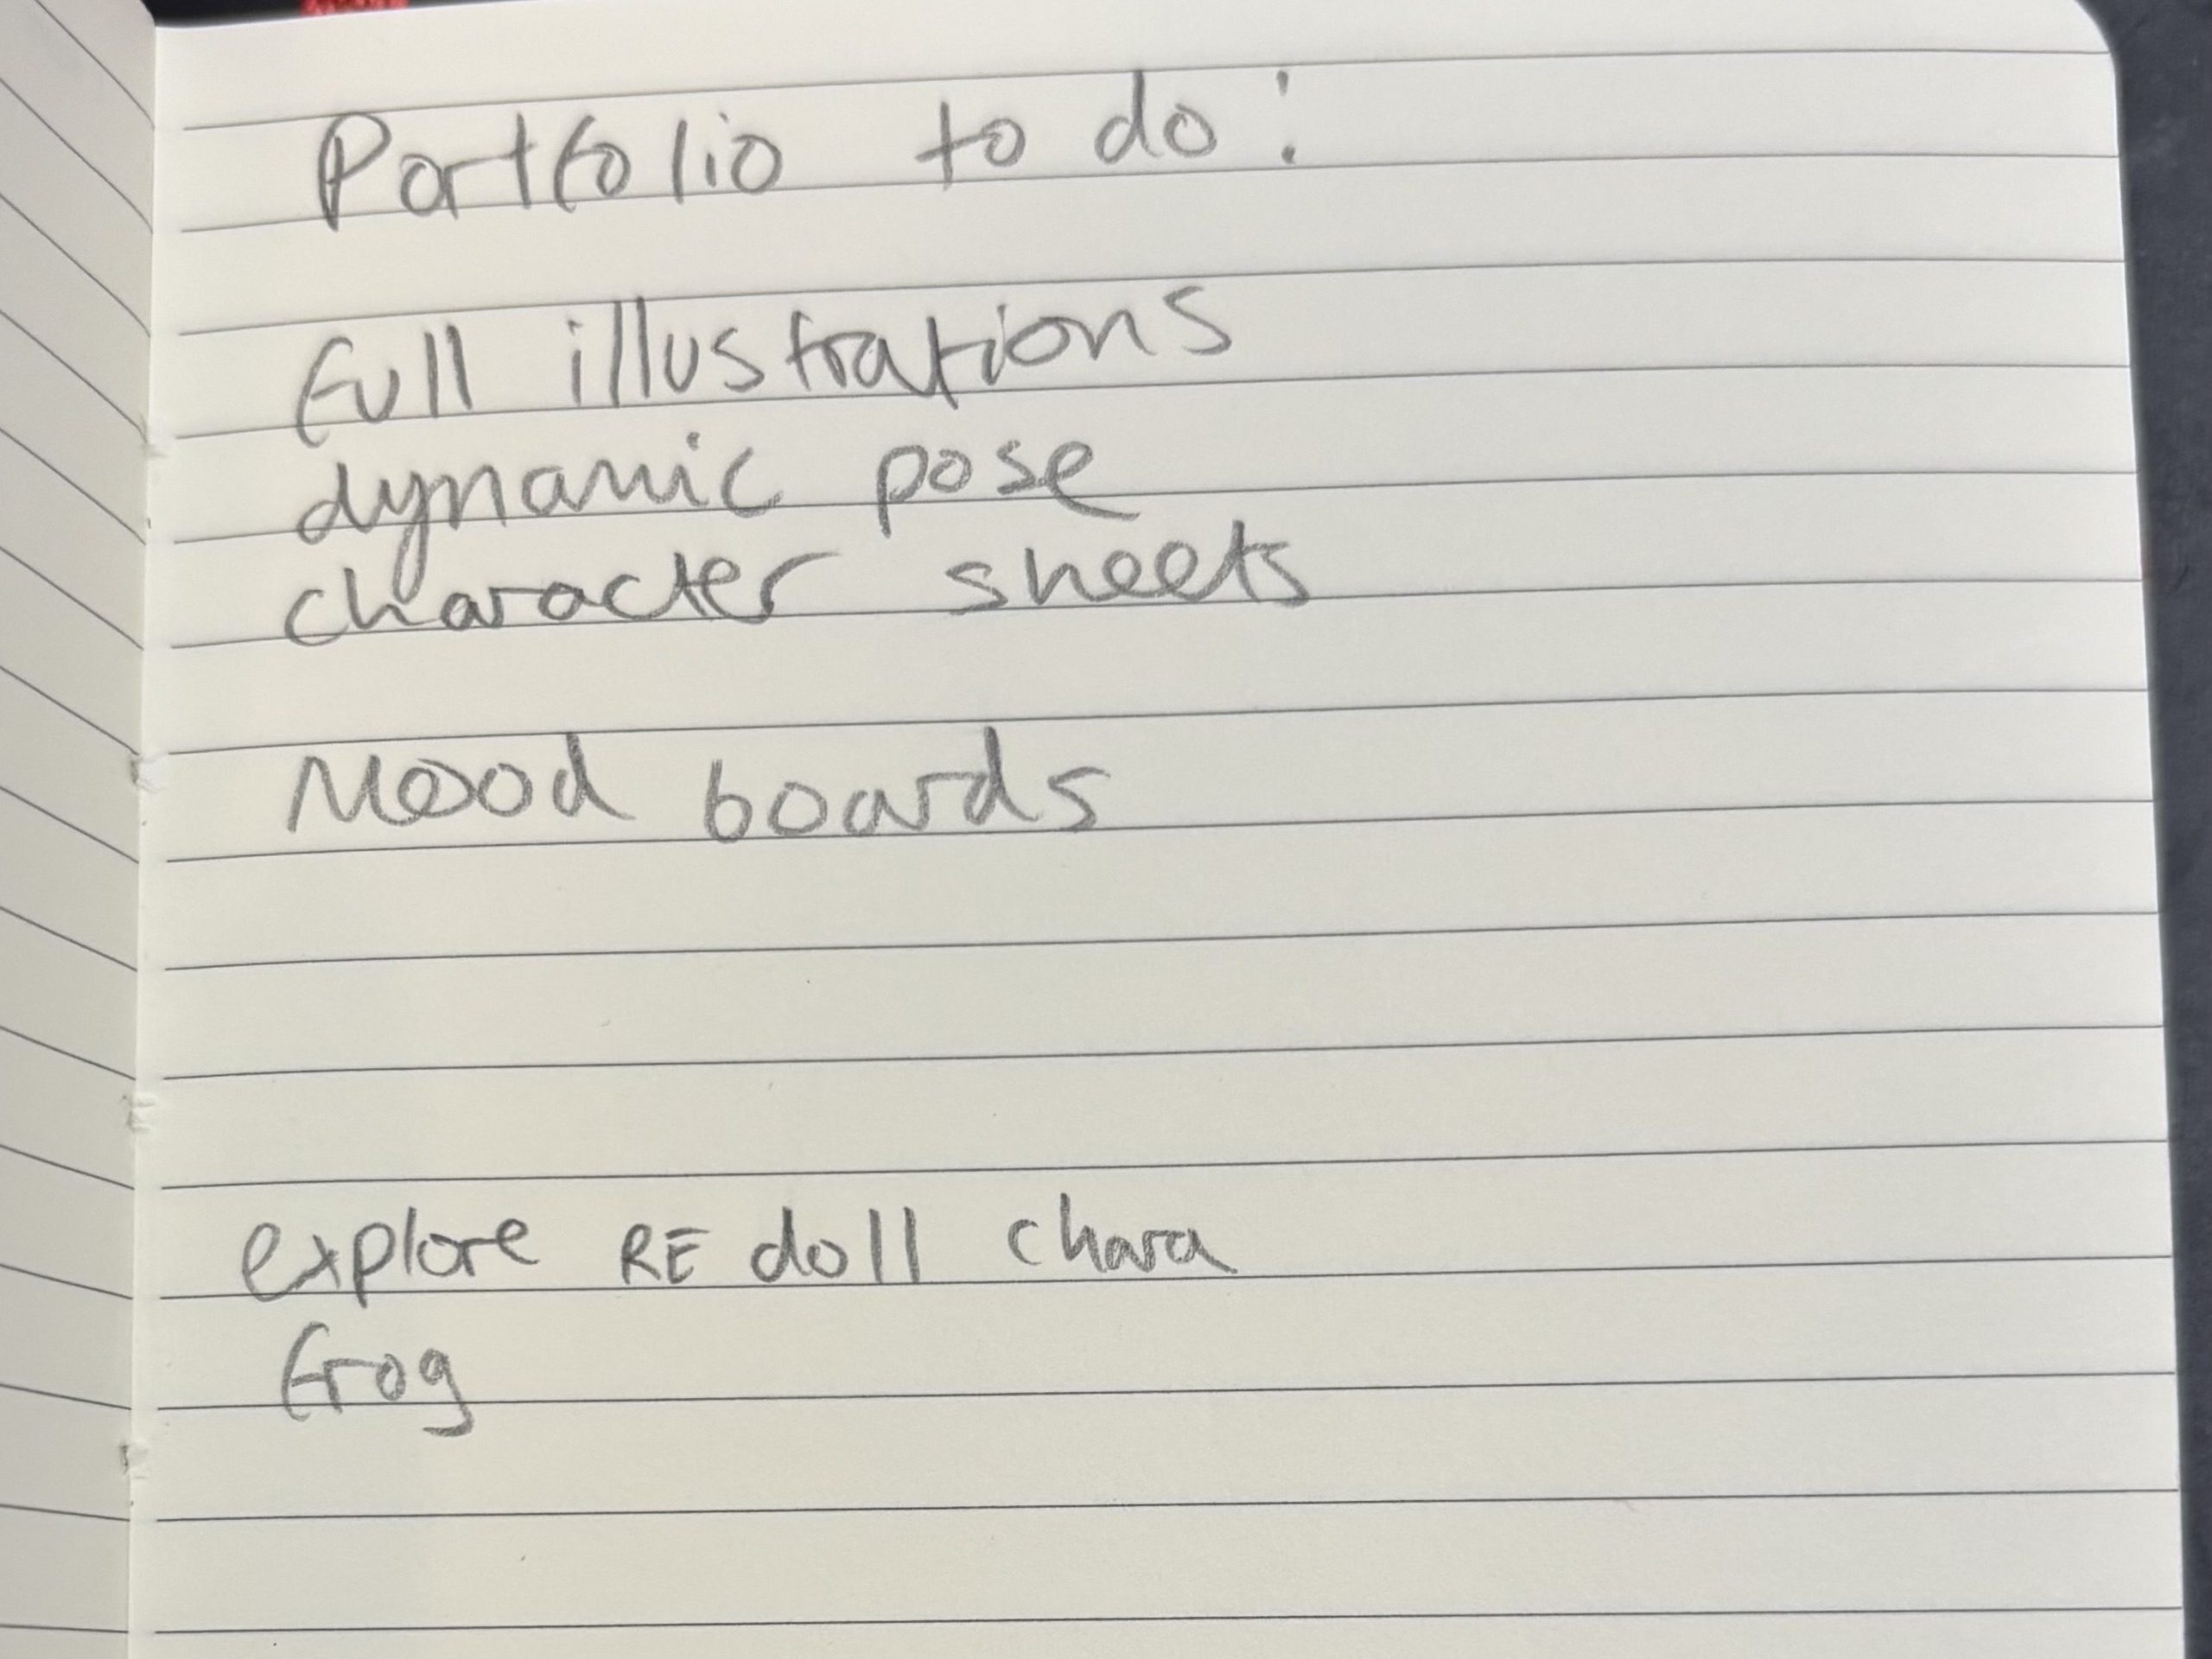 Portfolio to do:
full illustrations
dynamic pose
character sheets
Mood boards
explore RE doll chara
frog